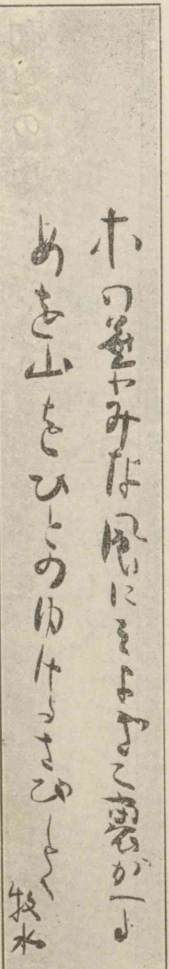 木の葉みな風にそよぎて裏がへる
あを山をひとのゆけるさびしさ
牧水